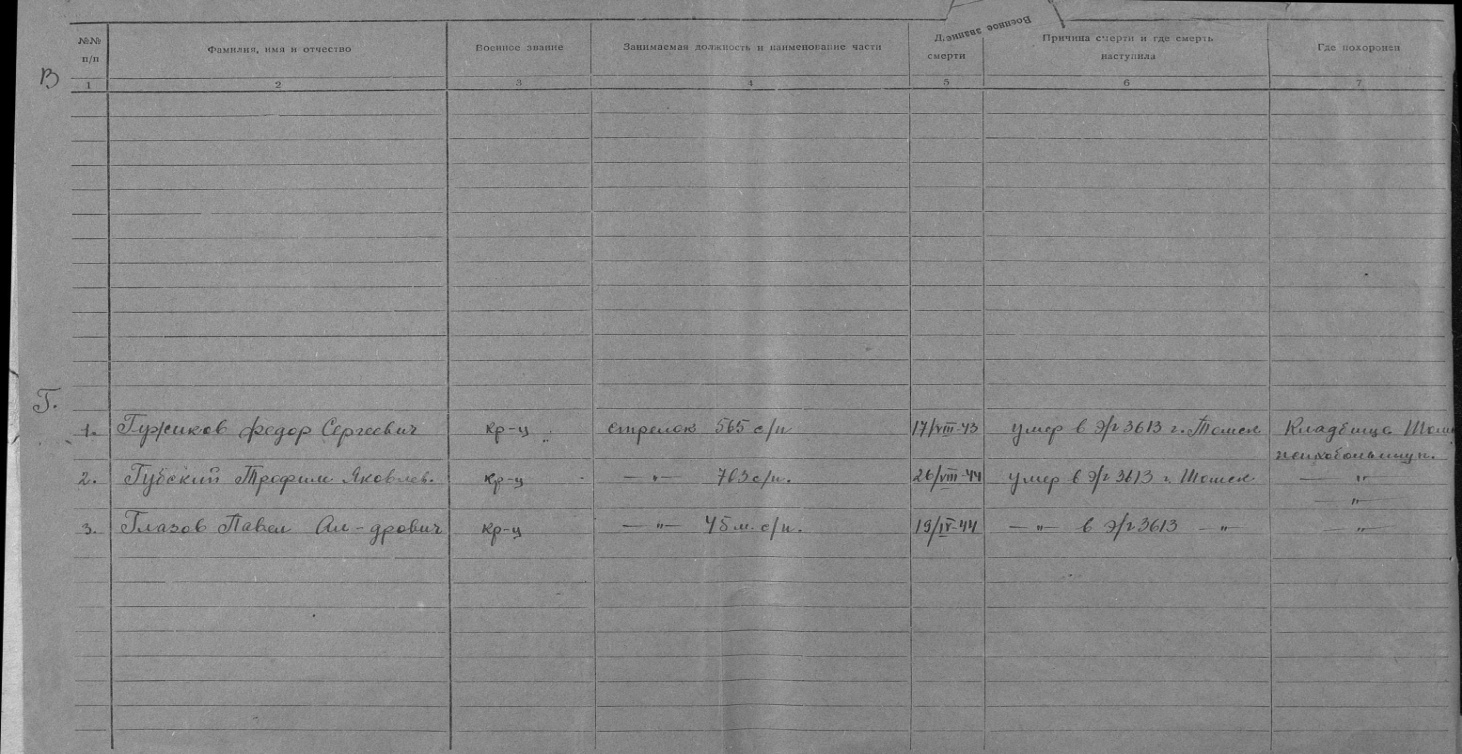 Военное звание
№№ п/п Фамилия, имя и отчество Военное звание Занимаемая должность и наименование части Д смерти Причина смерти и где смерть наступила Где похоронен
В
1 2 3 4 5 6 7
Г.
1. Гужиков Федор Сергеевич кр-ц стрелок 565 с/п 17/VIII-43 умер в э/г 3613 г. Томск Кладбище Том
психобольницы.
2. Губский Трофим Яковлев. кр-ц —"— 763 с/п. 26/VIII-44 умер в э/г 3613 г. Томск —"—
—"—
3. Глазов Павел Ал-дрович кр-ц —"— 45 м. с/п. 19/IV-44 —"— в э/г 3613 " —"—